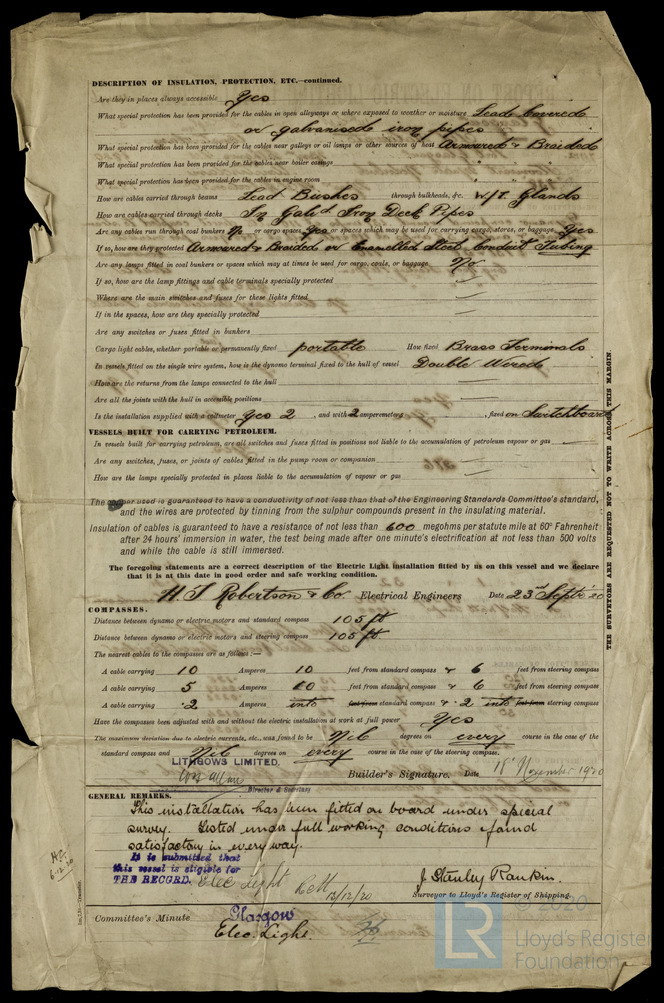 DESCRIPTION OF INSULATION, PROTECTION, ETC.—continued.
Are they in places always accessible Yes
What special protection has been provided for the cables in open alleyways or where exposed to weather or moisture Lead Covered
or galvanised iron pipes
What special protection has been provided for the cables near galleys or oil lamps or other sources of heat Armoured & Braided
What special protection has been provided for the cables near boiler casings " "
What special protection has been provided for the cables in engine room " "
How are cables carried through beams Lead Bushes through bulkheads, &c. W/T Glands
How are cables carried through decks In Galvd Iron Deck Pipes
Are any cables run through coal bunkers No or cargo spaces Yes or spaces which may be used for carrying cargo, stores, or baggage Yes
If so, how are they protected Armoured & Braided or Enamelled Steel Conduit Tubing
Are any lamps fitted in coal bunkers or spaces which may at times be used for cargo, coals, or baggage No
If so, how are the lamp fittings and cable terminals specially protected —
Where are the main switches and fuses for these lights fitted —
If in the spaces, how are they specially protected —
Are any switches or fuses fitted in bunkers —
Cargo light cables, whether portable or permanently fixed portable How fixed Brass Terminals
In vessels fitted on the single wire system, how is the dynamo terminal fixed to the hull of vessel Double Wired
How are the returns from the lamps connected to the hull —
Are all the joints with the hull in accessible positions —
Is the installation supplied with a voltmeter Yes 2, and with 2 amperemeters, fixed on Switchboard
VESSELS BUILT FOR CARRYING PETROLEUM.
In vessels built for carrying petroleum, are all switches and fuses fitted in positions not liable to the accumulation of petroleum vapour or gas —
Are any switches, fuses, or joints of cables fitted in the pump room or companion —
How are the lamps specially protected in places liable to the accumulation of vapour or gas —
The copper used is guaranteed to have a conductivity of not less than that of the Engineering Standards Committee's standard,
and the wires are protected by tinning from the sulphur compounds present in the insulating material.
Insulation of cables is guaranteed to have a resistance of not less than 600 megohms per statute mile at 60° Fahrenheit
after 24 hours' immersion in water, the test being made after one minute's electrification at not less than 500 volts
and while the cable is still immersed.
The foregoing statements are a correct description of the Electric Light installation fitted by us on this vessel and we declare
that it is at this date in good order and safe working condition.
Robertson & Co. Electrical Engineers Date 23rd Septr '20
COMPASSES.
Distance between dynamo or electric motors and standard compass 105 ft
Distance between dynamo or electric motors and steering compass 105 ft.
The nearest cables to the compasses are as follows:—
A cable carrying 10 Amperes 10 feet from standard compass & 6 feet from steering compass
A cable carrying 5 Amperes 10 feet from standard compass & 6 feet from steering compass
A cable carrying .2 Amperes into feet from standard compass & .2 into feet from steering compass
Have the compasses been adjusted with and without the electric installation at work at full power Yes
The maximum deviation due to electric currents, etc., was found to be Nil degrees on every course in the case of the
standard compass and Nil degrees on every course in the case of the steering compass.
LITHGOWS LIMITED.
Director & Secretary
Builder's Signature. Date 18 November 1920
GENERAL REMARKS.
This installation has been fitted on board under special
survey. Tested under full working conditions & found
satisfactory in every way.
It is submitted that
this vessel is eligible for
THE RECORD. Elec Light
13/12/20
J. Stanley Rankin.
Surveyor to Lloyd's Register of Shipping.
Committee's Minute Glasgow
Elec. Light.
THE SURVEYORS ARE REQUESTED NOT TO WRITE ACROSS THIS MARGIN.
6.12.20
LR
© 2020
Lloyd's Register
Foundation